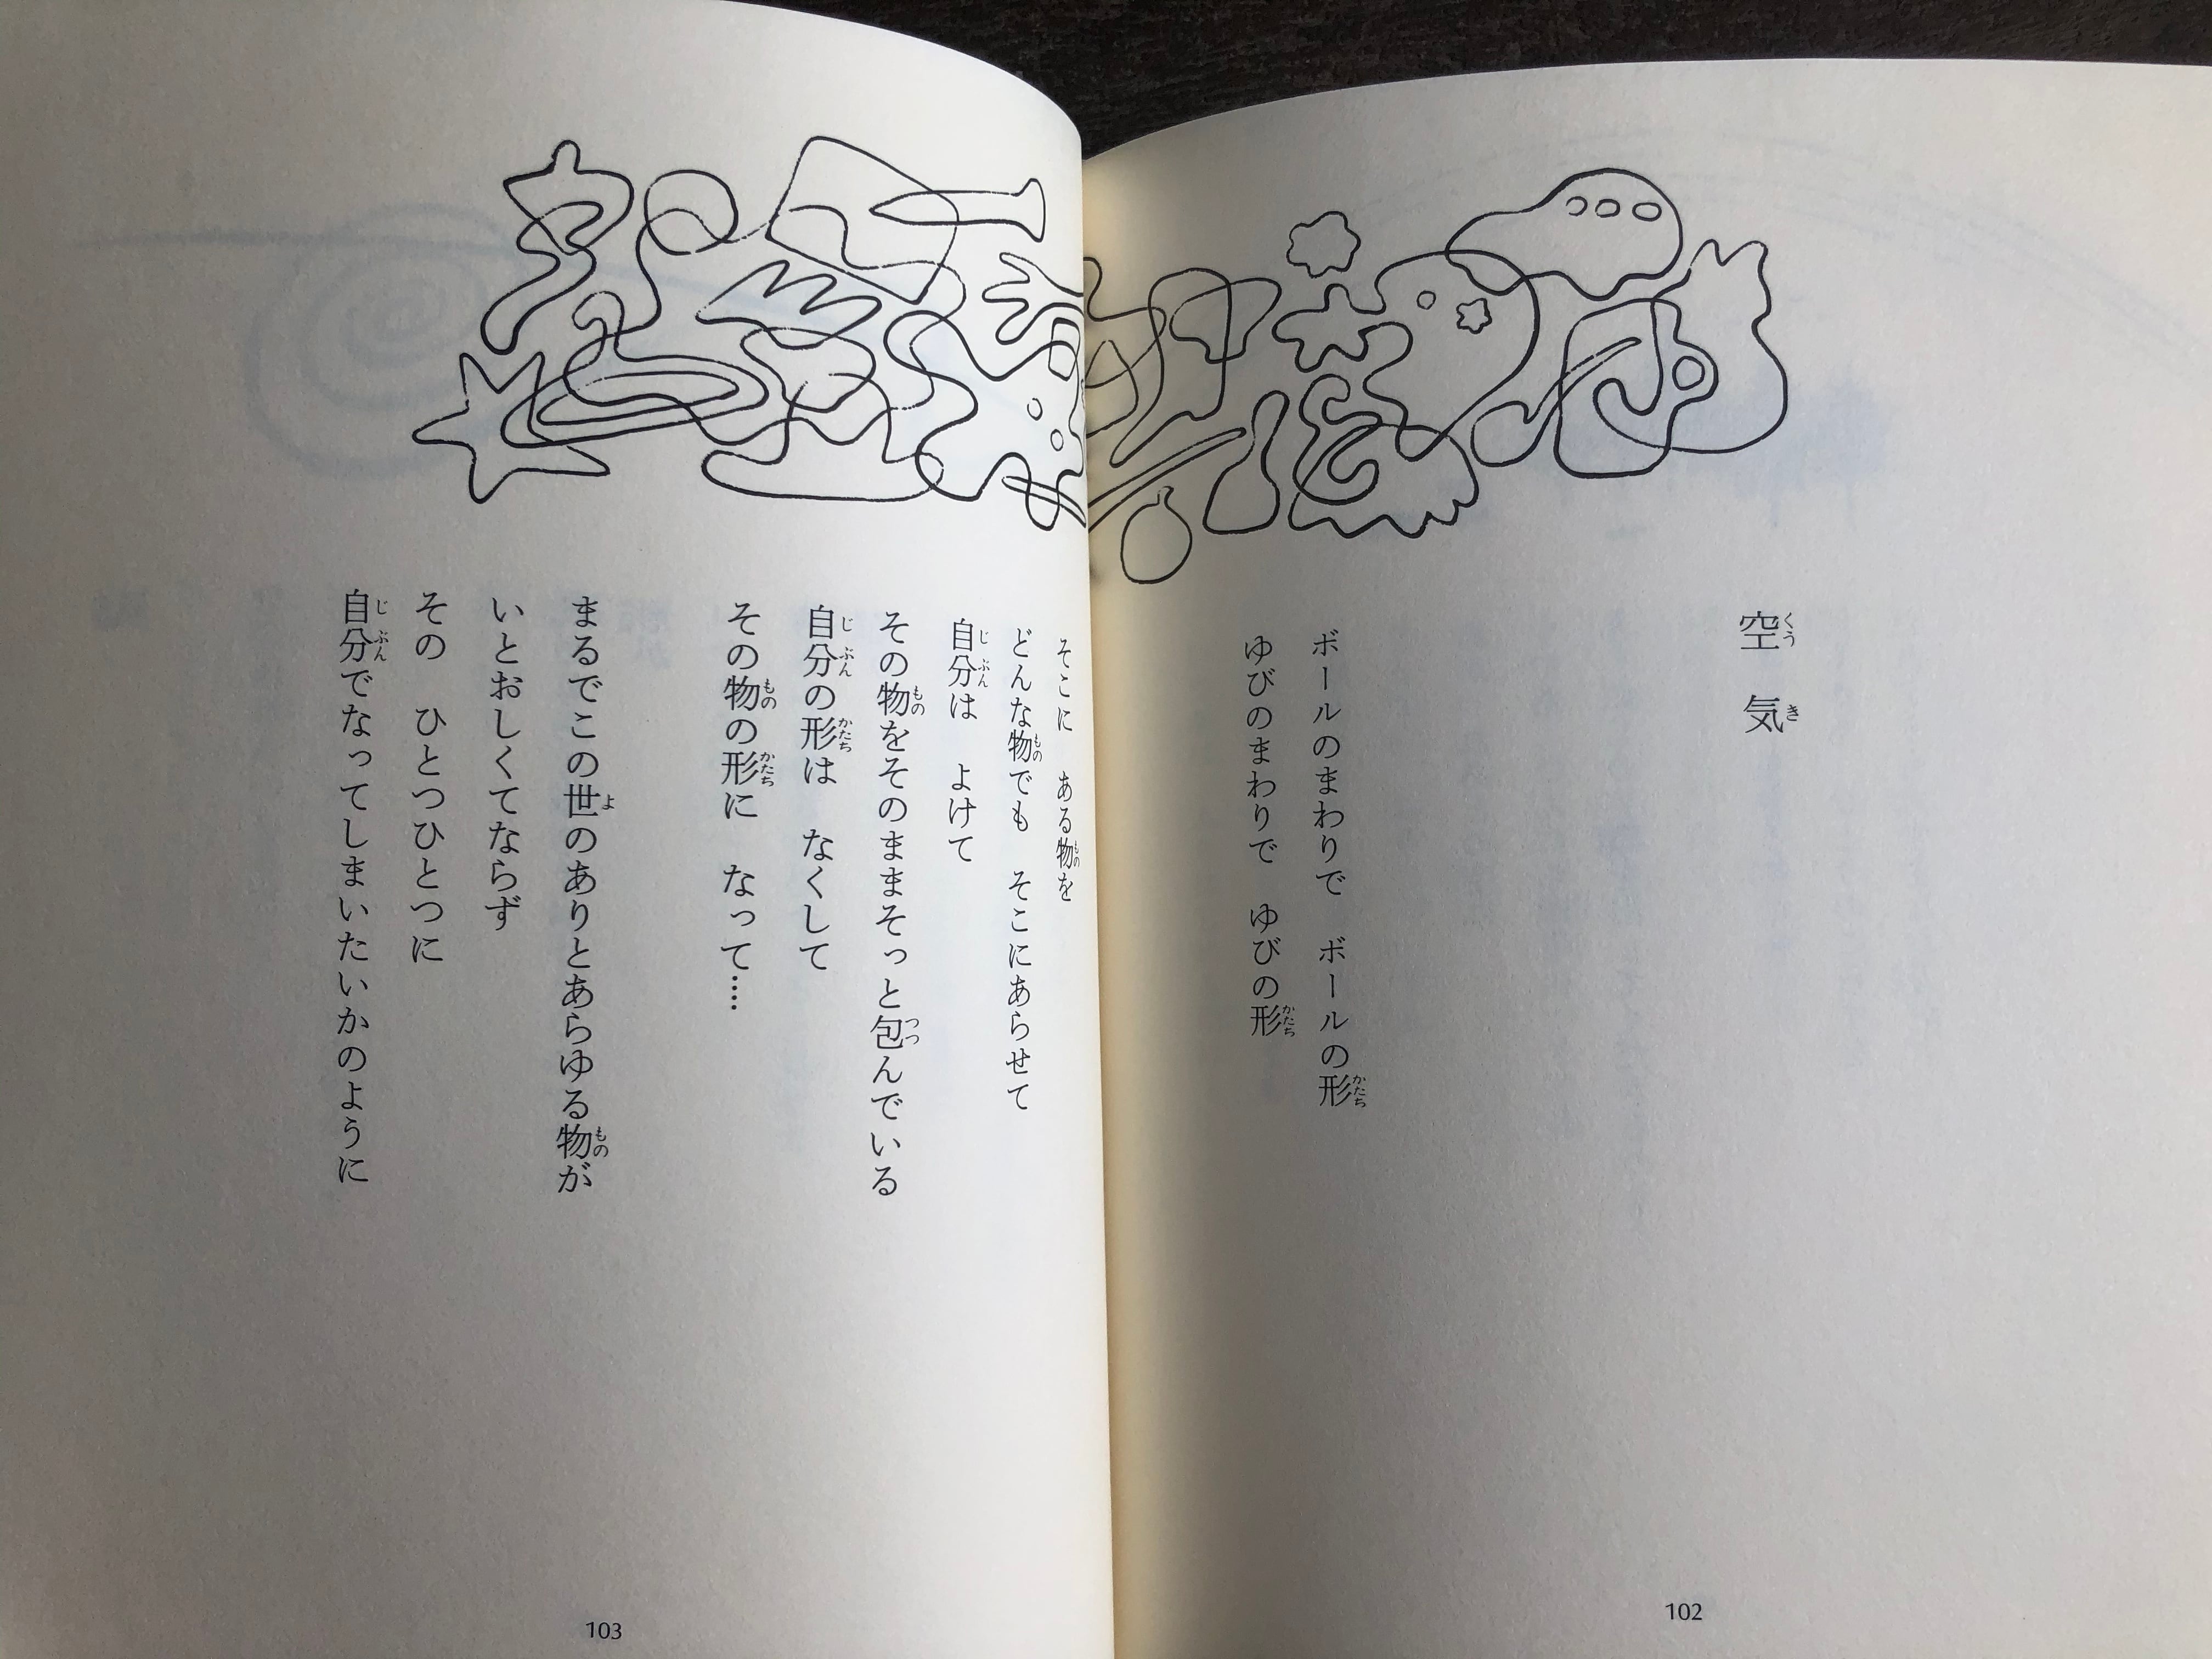 空気
ボールのまわりで　ボールの形
ゆびのまわりで　ゆびの形
102
そこに　ある物を
どんな物でも　そこにあらせて
自分は　よけて
その物をそのままそっと包んでいる
自分の形は　なくして
その物の形に　なって……
まるでこの世のありとあらゆる物が
いとおしくてならず
その　ひとつひとつに
自分でなってしまいたいかのように
103